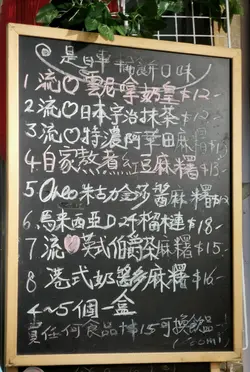 是日事 口味
1. 流♡雲呢嗱奶皇 $12-
2. 流♡日本宇治抹茶 $12-
3. 流♡特濃阿華田麻糬 $13-
4. 自家熬煮紅豆麻糬 $13-
5 Oreo朱古力金莎醬麻糬 $12
6. 馬來西亞D24榴槤 $18-
7 流♡英式伯爵茶麻糬 $15-
8 港式奶醬多麻糬 $16-
4~5個一盒
買任何食品 15可換